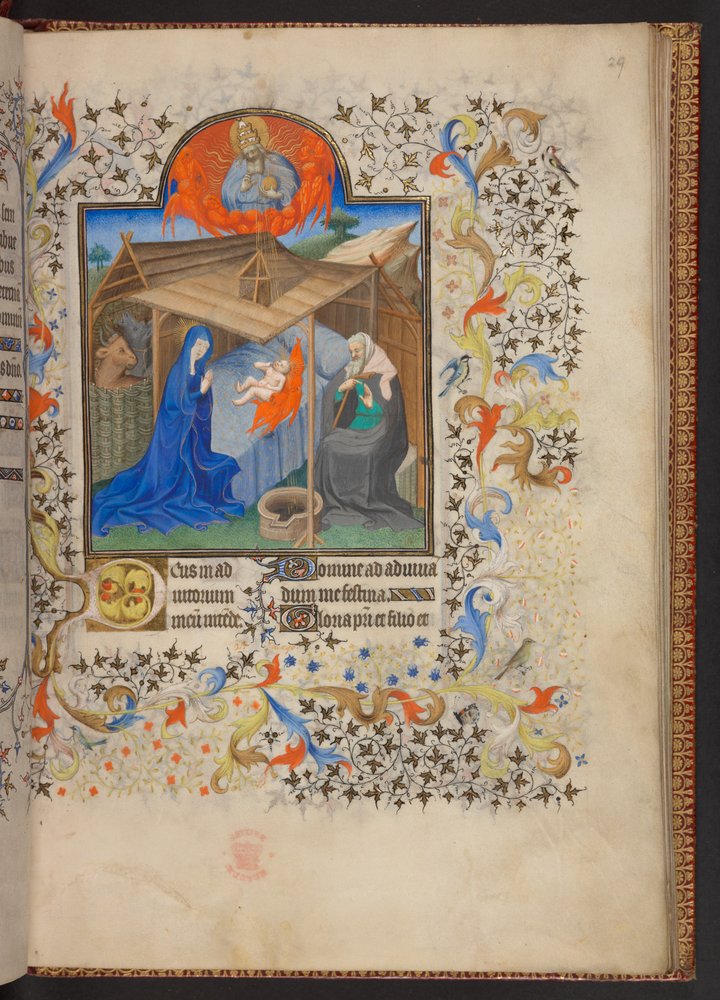 29
Deus in ad
iutorium
meu intede.
Domine ad adiuua
dum me festina.
Gloria pri et filio et